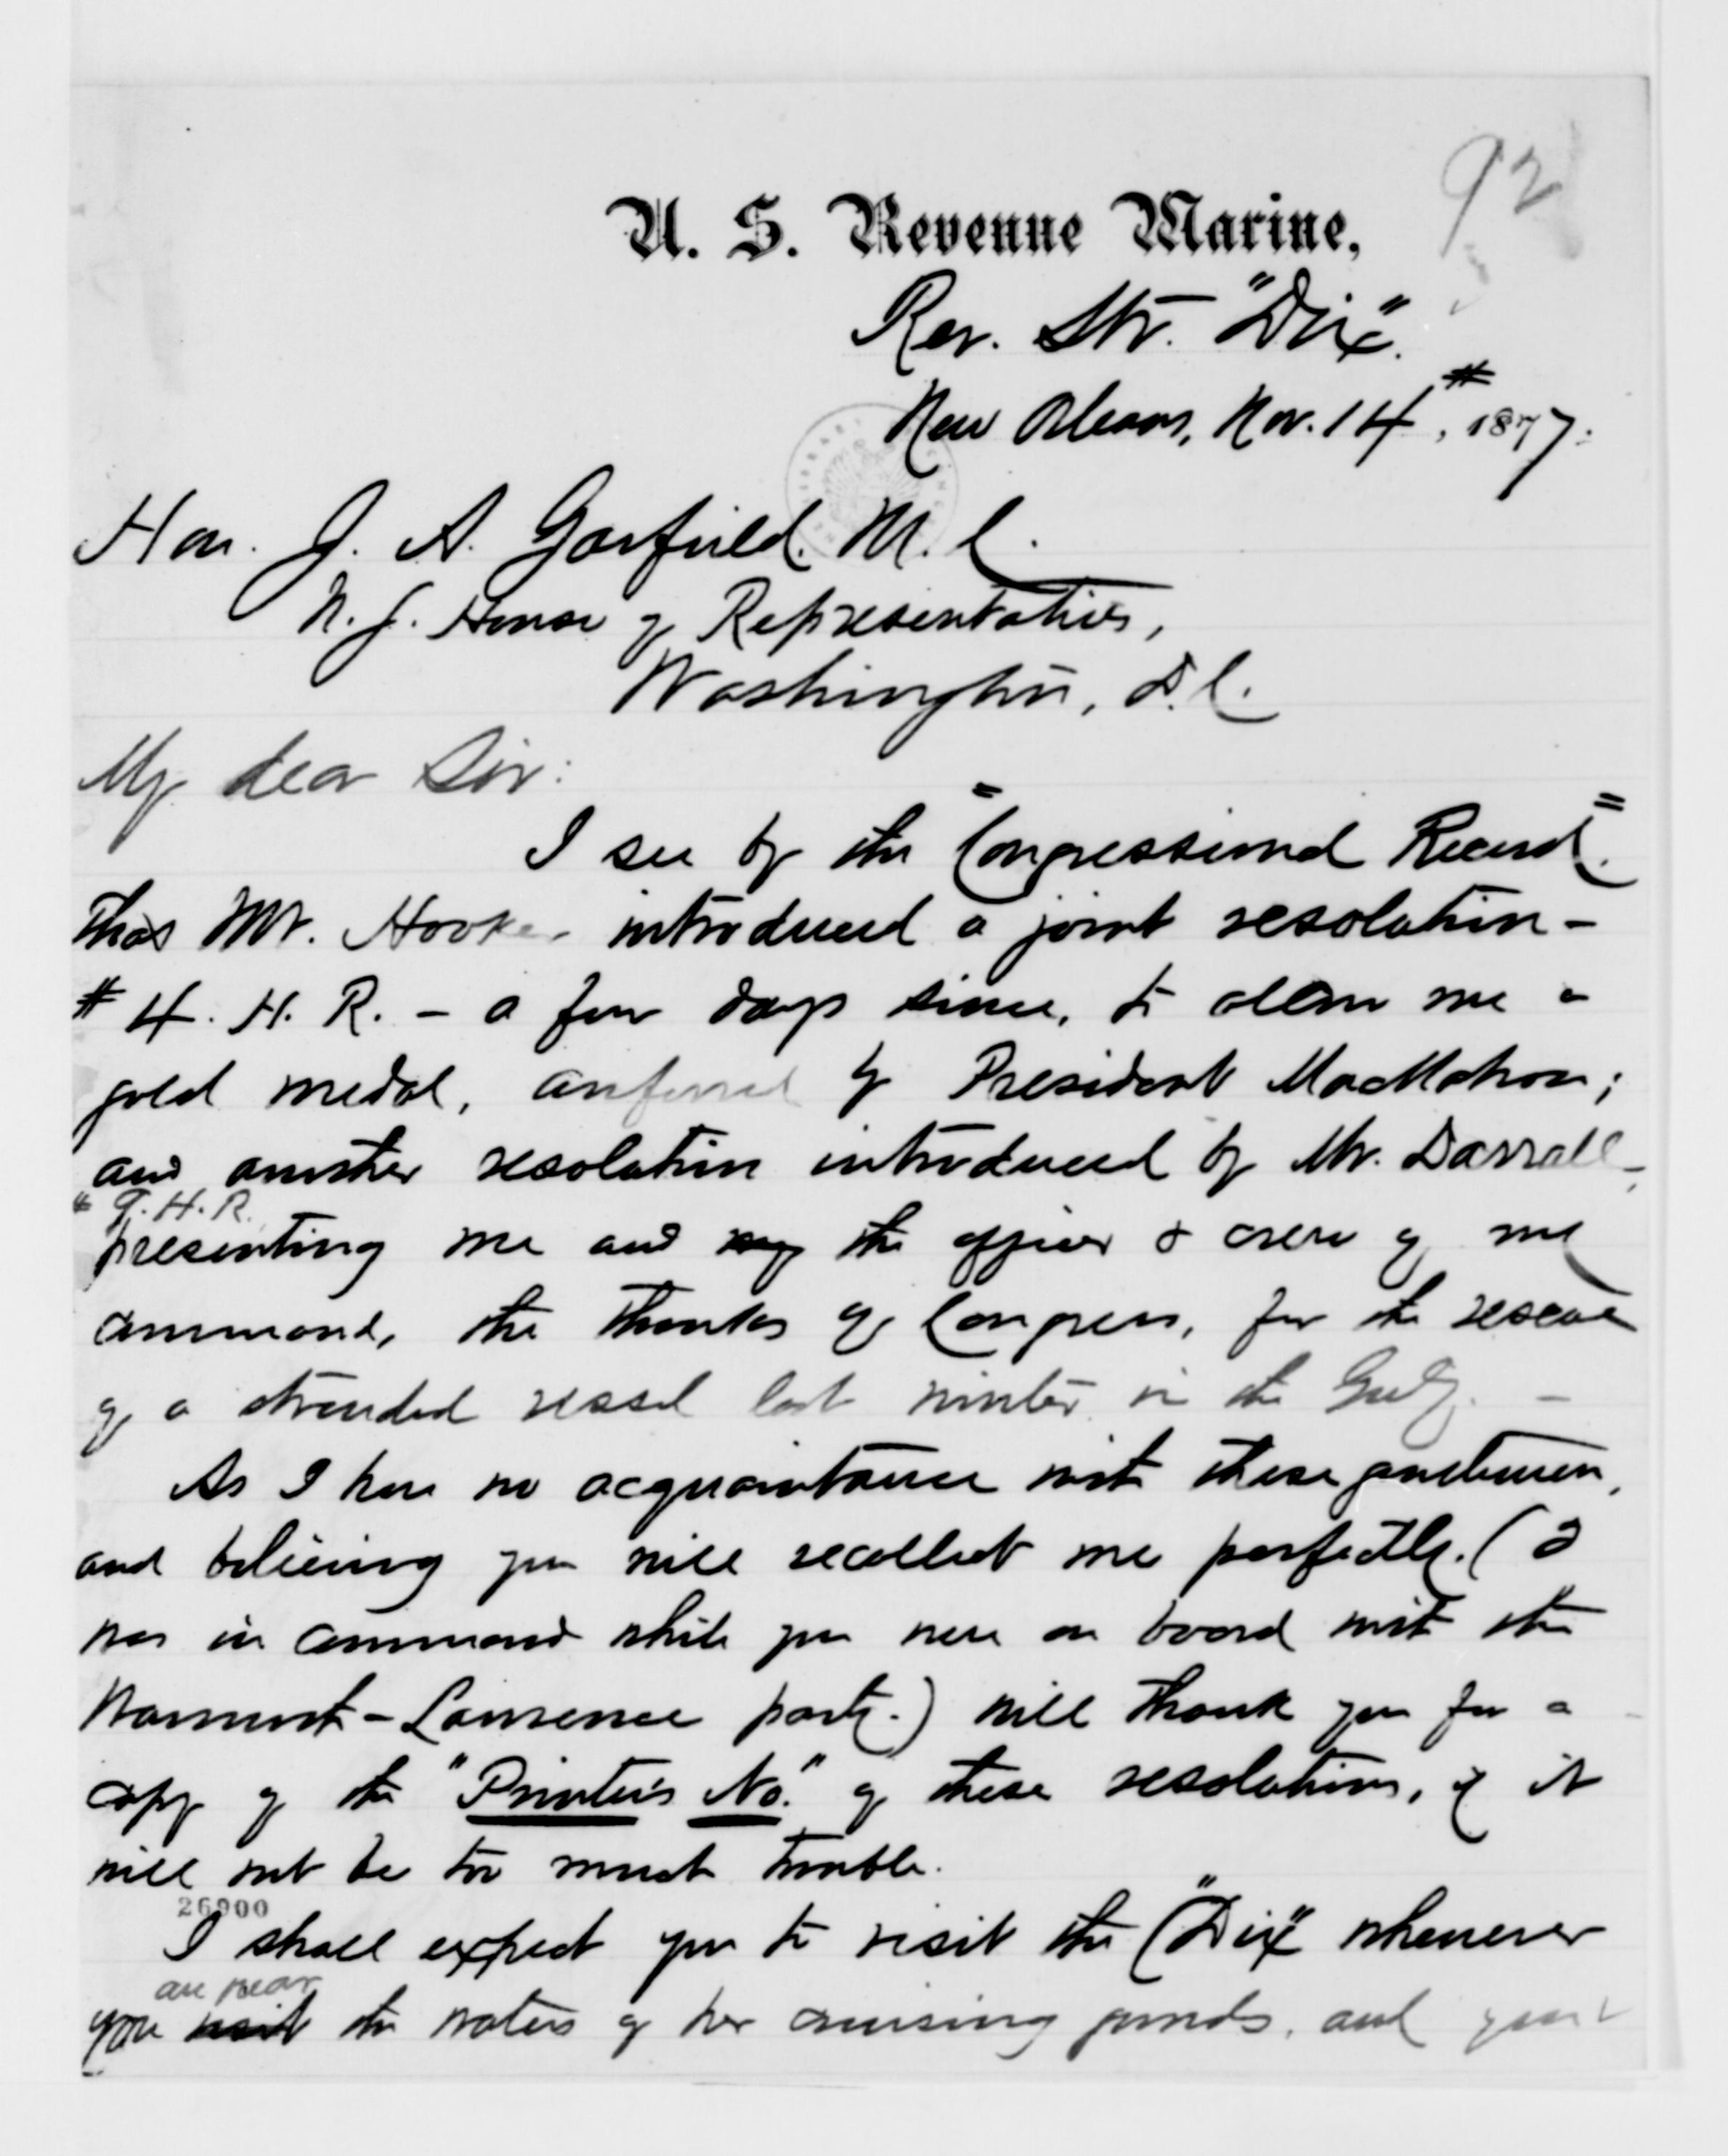 92
U. S. Revenue Marine,
Rev. Str. "Dix".
New Orleans, Nov. 14th, 1877.
Hon. J. A. Garfield. M. C.
U. S. House of Representatives,
Washington, D. C.
My dear Sir:
I see by the "Congressional Record".
that Mr. Hooker introduced a joint resolution -
# 4. H. R. - a few days since, to allow me a
gold medal, conferred by President MacMahon;
and another resolution introduced by Mr. Darrall -
# 9. H. R.
presenting me and my the officers & crew of my
command, the thanks of Congress, for the rescue
of a stranded vessel last winter in the Gulf. -
As I have no acquaintance with these gentlemen,
and believing you will recollect me perfectly. (I
was in command while you were on board with the
Wormert - Lawrence party.) will thank you for a
copy of the "Printer's No." of these resolutions, if it
will not be too much trouble.
26900
I shall expect you to visit the "Dix" whenever
are near
you visit the waters of her cruising grounds, and your